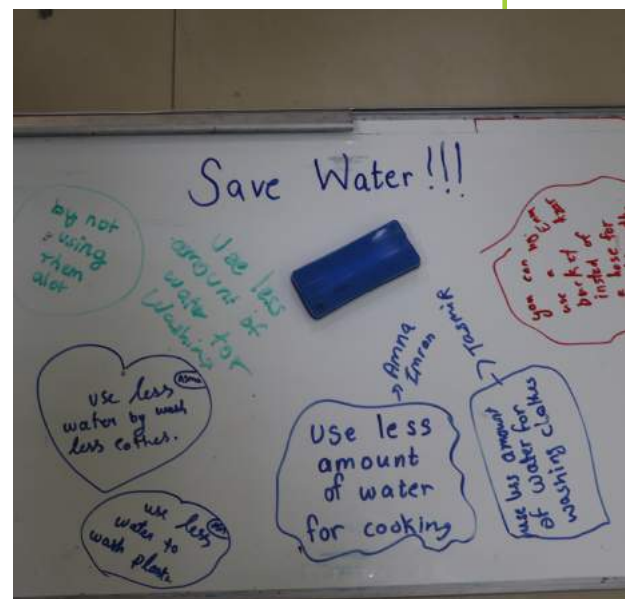 Save Water!!!
by not
using
them
alot
Use less
amount of
water for
Washing
you can
use a
bucket
insted of
a hose for
use less
water by wash
less cothes.
use less
water to
wash
Amna
Imran
USE less
amount
of water
for cooking
Tasmir
use less amount
of water for
washing clothes